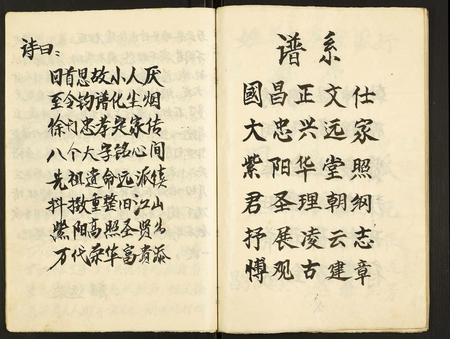 诗曰：
旧首思故小人厌
至令钧谱化尘烟
徐门忠孝是家传
八个大字铭心间
先祖遗命远派慎
抖擞重整旧江山
紫阳高照圣贤出
万代荣华富贵添
谱系
國昌正文仕
大忠兴远家
紫阳华堂照
君圣理朝纲
抒展凌云志
博观古建章